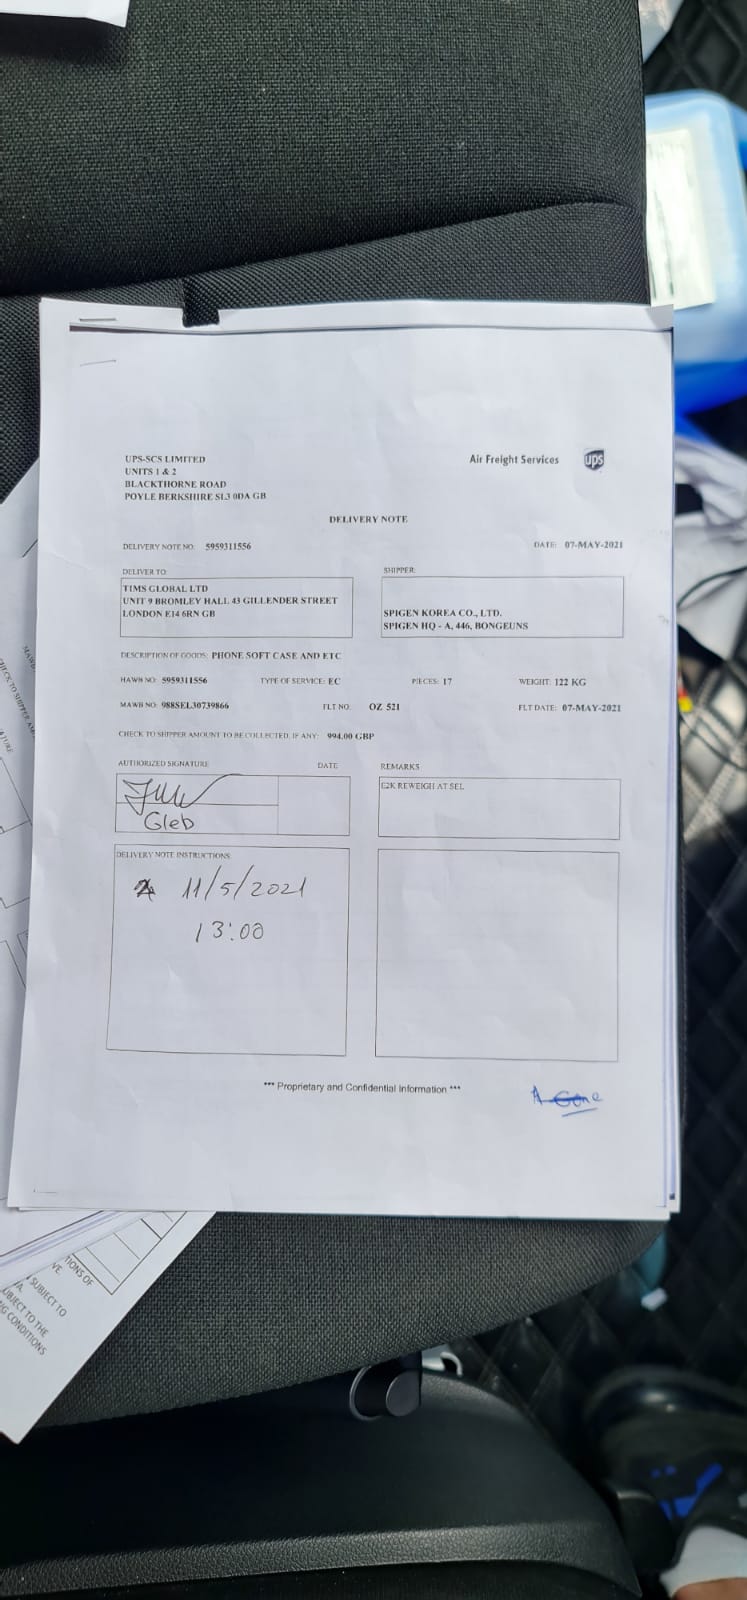 UPS-SCS LIMITED
UNITS 1 & 2
BLACKTHORNE ROAD
POYLE BERKSHIRE SL3 0DA GB
Air Freight Services ups
DELIVERY NOTE
DELIVERY NOTE NO: 5959311556 DATE: 07-MAY-2021
DELIVER TO: SHIPPER:
TIMS GLOBAL LTD
UNIT 9 BROMLEY HALL 43 GILLENDER STREET
LONDON E14 6RN GB
SPIGEN KOREA CO., LTD.
SPIGEN HQ - A, 446, BONGEUNS
DESCRIPTION OF GOODS: PHONE SOFT CASE AND ETC
HAWB NO: 5959311556 TYPE OF SERVICE: EC PIECES: 17 WEIGHT: 122 KG
MAWB NO: 988SEL30739866 FLT NO: OZ 521 FLT DATE: 07-MAY-2021
CHECK TO SHIPPER AMOUNT TO BE COLLECTED, IF ANY: 994.00 GBP
AUTHORIZED SIGNATURE DATE REMARKS
E2K REWEIGH AT SEL
Gleb
DELIVERY NOTE INSTRUCTIONS:
11/5/2021
13:00
*** Proprietary and Confidential Information ***
TIONS OF
VE.
SUBJECT TO
UBJECT TO THE
G CONDITIONS